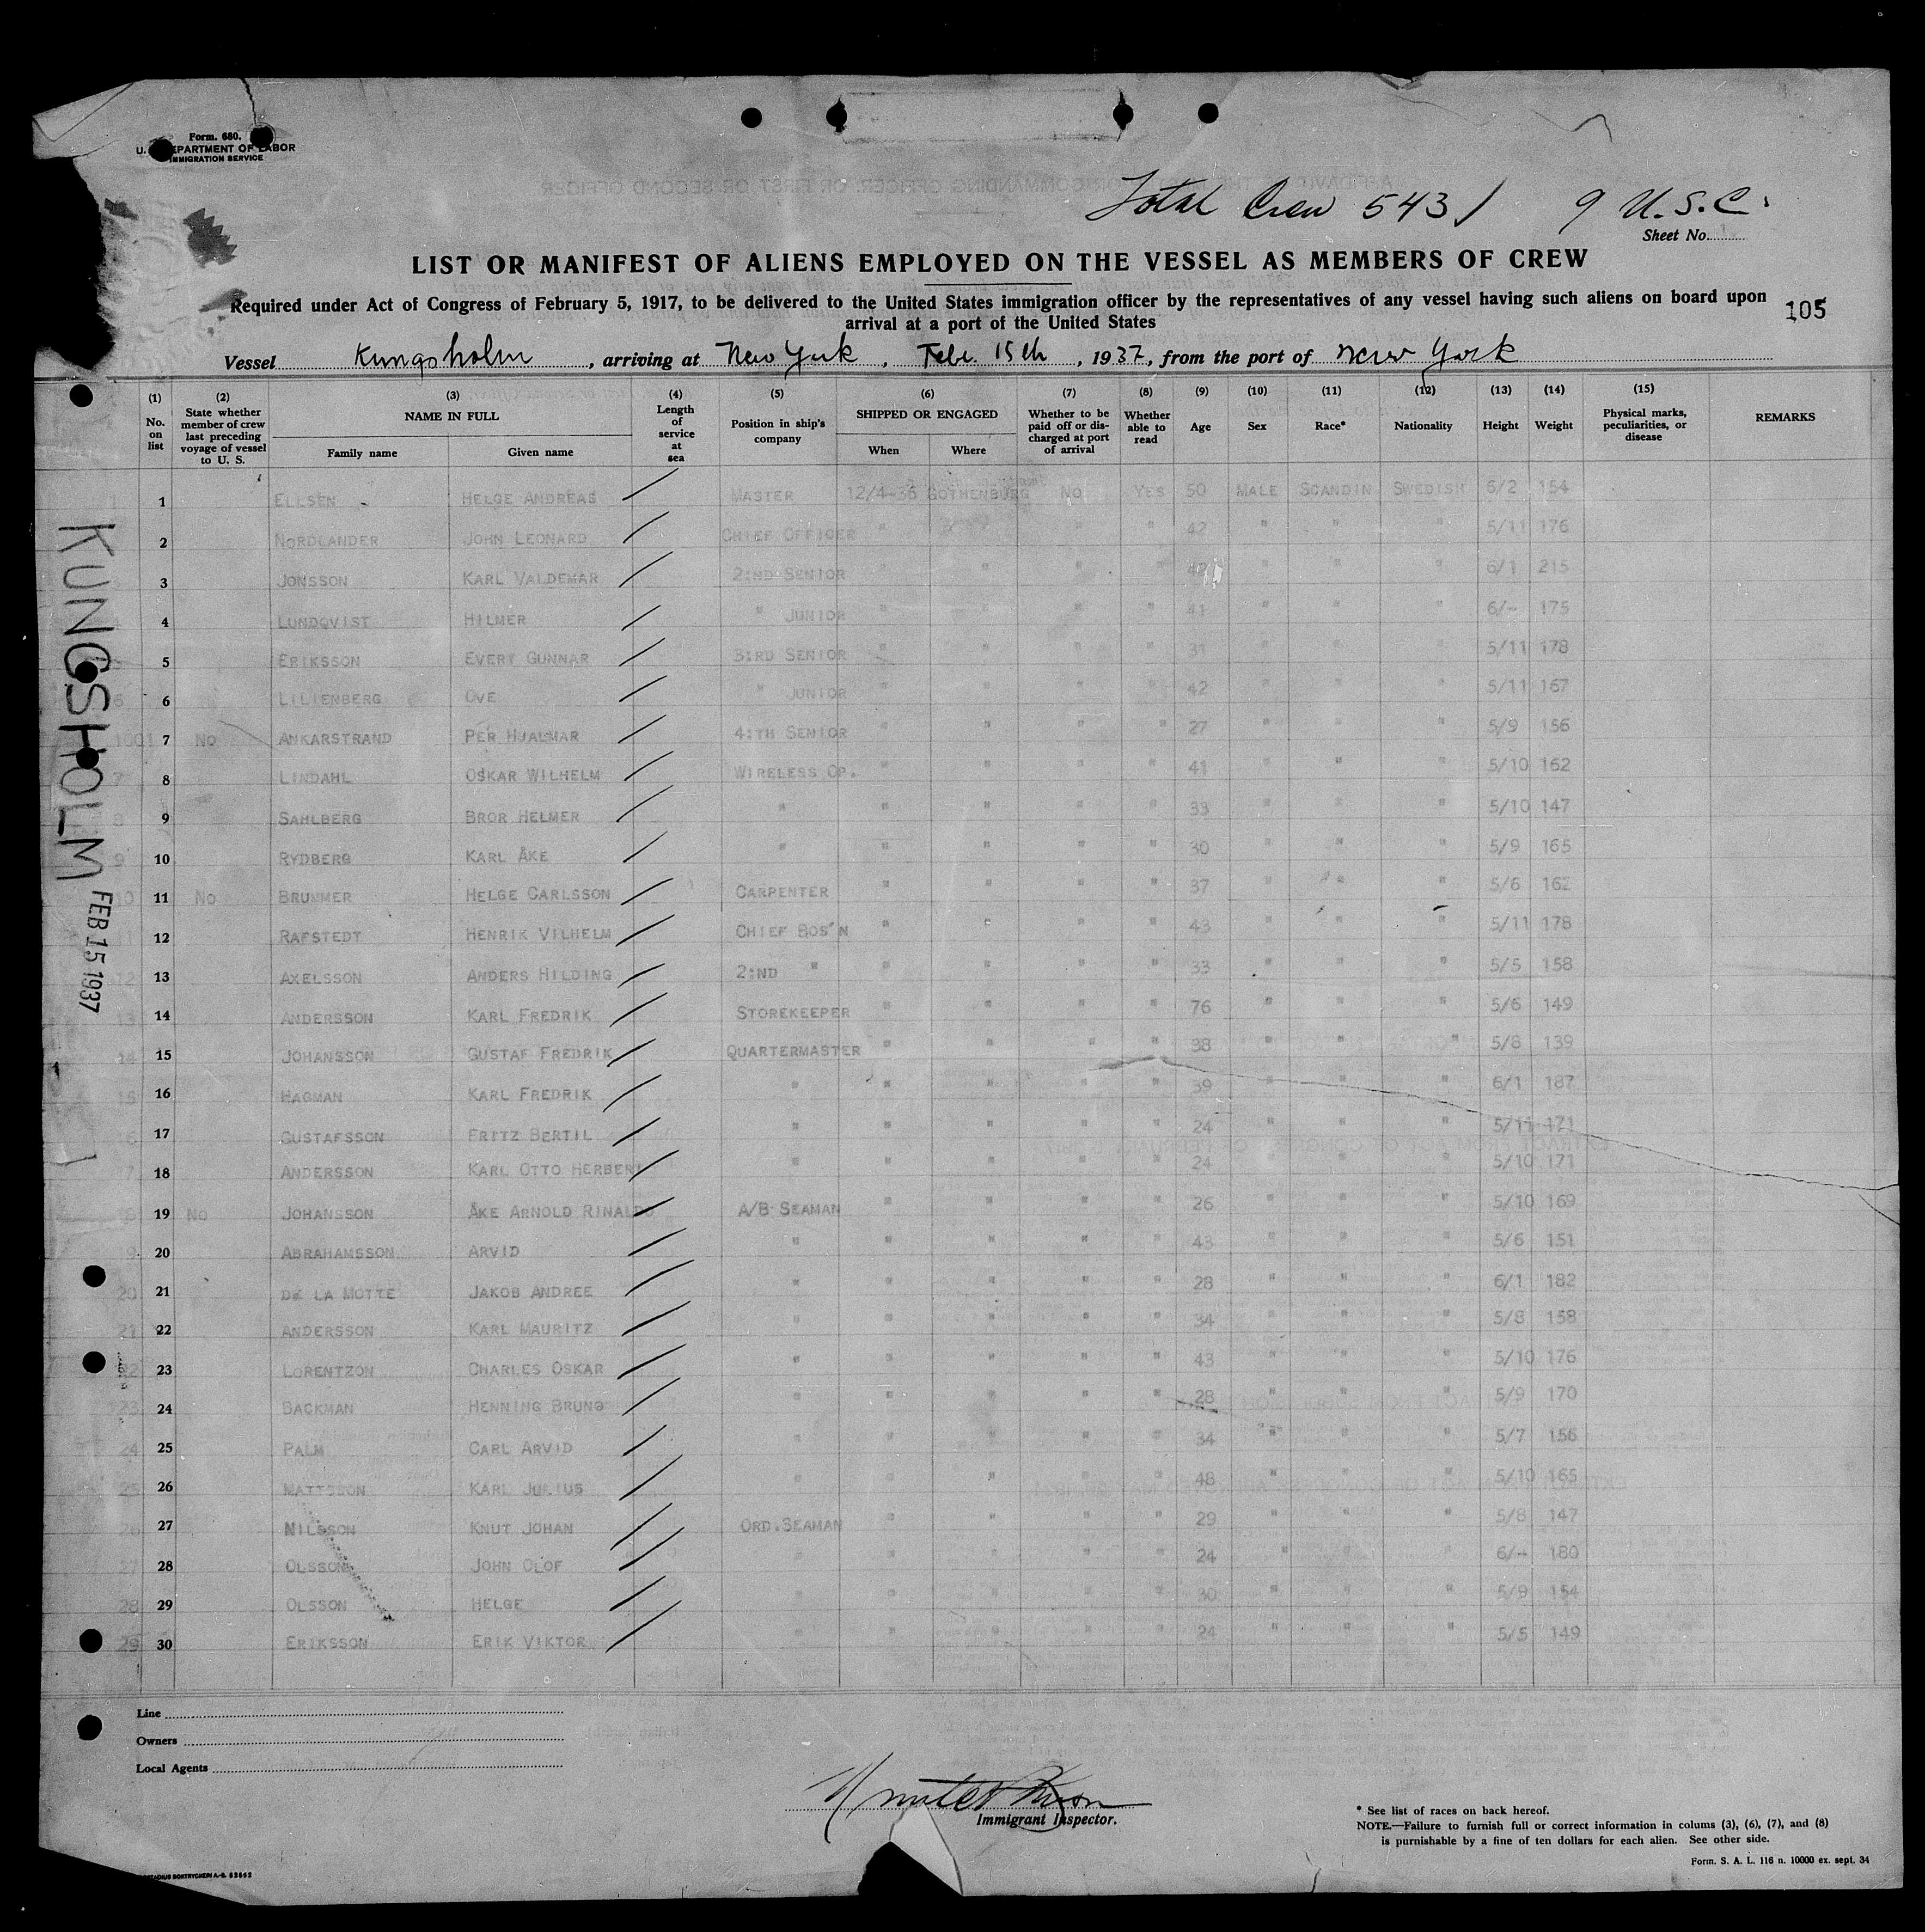 Form. 680.
U. DEPARTMENT OF LABOR
IMMIGRATION SERVICE
Total Crew 543 / 9 U.S.C.
Sheet No.
LIST OR MANIFEST OF ALIENS EMPLOYED ON THE VESSEL AS MEMBERS OF CREW
Required under Act of Congress of February 5, 1917, to be delivered to the United States immigration officer by the representatives of any vessel having such aliens on board upon
arrival at a port of the United States
105
Vessel Kungsholm, arriving at New York, Febr. 15th, 1937, from the port of New York
(1) (2) (3) (4) (5) (6) (7) (8) (9) (10) (11) (12) (13) (14) (15)
No. on list
State whether member of crew last preceding voyage of vessel to U. S.
NAME IN FULL
Family name
Given name
Length of service at sea
Position in ship's company
SHIPPED OR ENGAGED
When
Where
Whether to be paid off or discharged at port of arrival
Whether able to read
Age
Sex
Race*
Nationality
Height
Weight
Physical marks, peculiarities, or disease
REMARKS
1 ELLSEN HELGE ANDREAS MASTER 12/4-36 GOTHENBURG NO YES 50 MALE SCANDIN SWEDISH 6/2 154
2 NORDLANDER JOHN LEONARD CHIEF OFFICER " " " " 42 " " " 5/11 176
3 JONSSON KARL VALDEMAR 2:ND SENIOR " " " " " " " 6/1 215
4 LUNDQVIST HILMER " JUNIOR " " " " 41 " " " 6/- 175
5 ERIKSSON EVERT GUNNAR 3:RD SENIOR " " " " 31 " " " 5/11 178
6 LILIENBERG OVE " JUNIOR " " " " 42 " " " 5/11 167
7 No ANKARSTRAND PER HJALMAR 4:TH SENIOR " " " " 27 " " " 5/9 156
8 LINDAHL OSKAR WILHELM WIRELESS OP. " " " " 41 " " " 5/10 162
9 SAHLBERG BROR HELMER " " " " " 33 " " " 5/10 147
10 RYDBERG KARL ÅKE " " " " " 30 " " " 5/9 165
11 No BRUMMER HELGE CARLSSON CARPENTER " " " " 37 " " " 5/6 162
12 RAFSTEDT HENRIK VILHELM CHIEF BOS'N " " " " 43 " " " 5/11 178
13 AXELSSON ANDERS HILDING 2:ND " " " " " 33 " " " 5/5 158
14 ANDERSSON KARL FREDRIK STOREKEEPER " " " " 76 " " " 5/6 149
15 JOHANSSON GUSTAF FREDRIK QUARTERMASTER " " " " 38 " " " 5/8 139
16 HAGMAN KARL FREDRIK " " " " " 39 " " " 6/1 187
17 GUSTAFSSON FRITZ BERTIL " " " " " 24 " " " 5/11 171
18 ANDERSSON KARL OTTO HERBERT " " " " " 24 " " " 5/10 171
19 No JOHANSSON ÅKE ARNOLD RINALDO A/B SEAMAN " " " " 26 " " " 5/10 169
20 ABRAHAMSSON ARVID " " " " " 43 " " " 5/6 151
21 DE LA MOTTE JAKOB ANDREE " " " " " 28 " " " 6/1 182
22 ANDERSSON KARL MAURITZ " " " " " 34 " " " 5/8 158
23 LORENTZON CHARLES OSKAR " " " " " 43 " " " 5/10 176
24 BACKMAN HENNING BRUNO " " " " " 28 " " " 5/9 170
25 PALM CARL ARVID " " " " " 34 " " " 5/7 156
26 MATTSSON KARL JULIUS " " " " " 48 " " " 5/10 165
27 NILSSON KNUT JOHAN ORD.SEAMAN " " " " 29 " " " 5/8 147
28 OLSSON JOHN OLOF " " " " " 24 " " " 6/- 180
29 OLSSON HELGE " " " " " 30 " " " 5/9 154
30 ERIKSSON ERIK VIKTOR " " " " " 24 " " " 5/5 149
KUNGSHOLM
FEB 15 1937
Line
Owners
Local Agents
Immigrant Inspector.
* See list of races on back hereof.
NOTE.—Failure to furnish full or correct information in colums (3), (6), (7), and (8)
is punishable by a fine of ten dollars for each alien. See other side.
Form. S. A. L. 116 n. 10000 ex. sept. 34
BOKTRYCKERI A.-B.